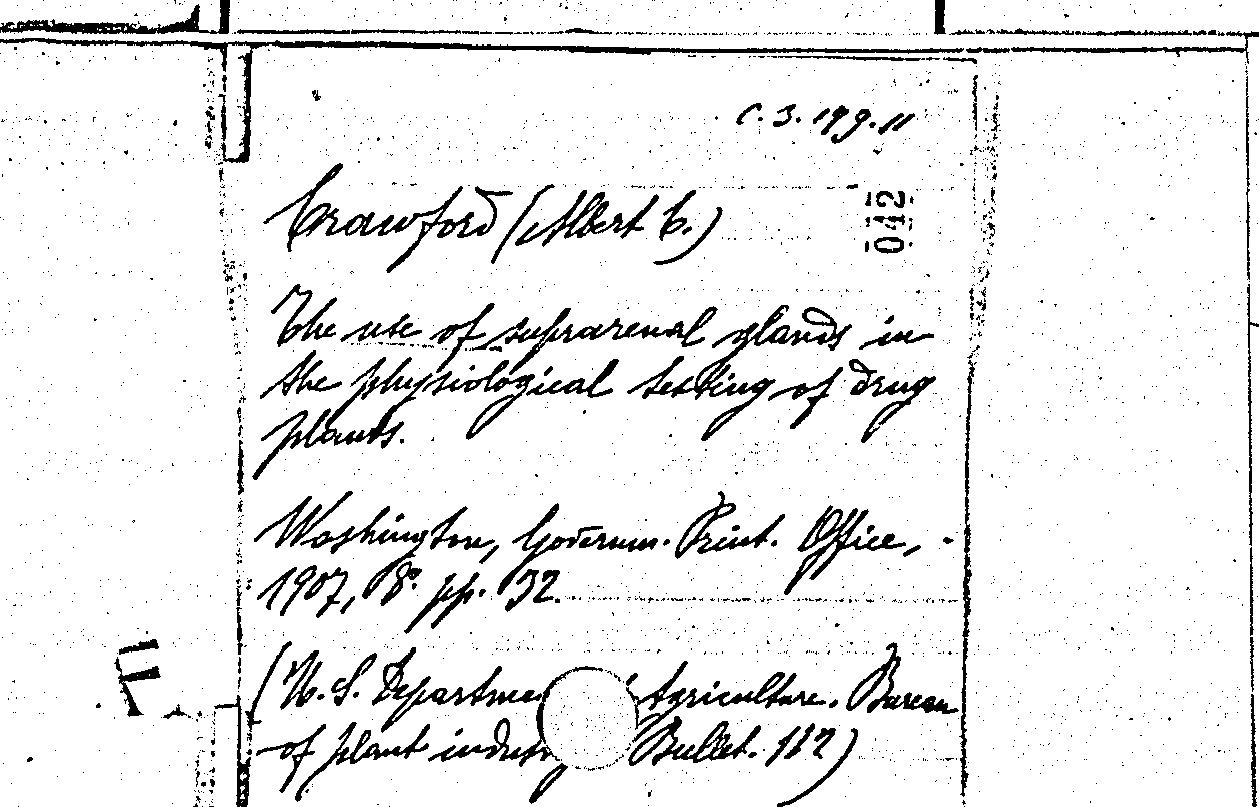 C. 3. 199. 11
042
Crawford (Albert C.)
The use of suprarenal glands in
the physiological testing of drug
plants.
Washington, Governm. Print. Office,
1907, 8º. pp. 32.
(U. S. Departme Agriculture. Bureau
of plant indust Bullet. 112)